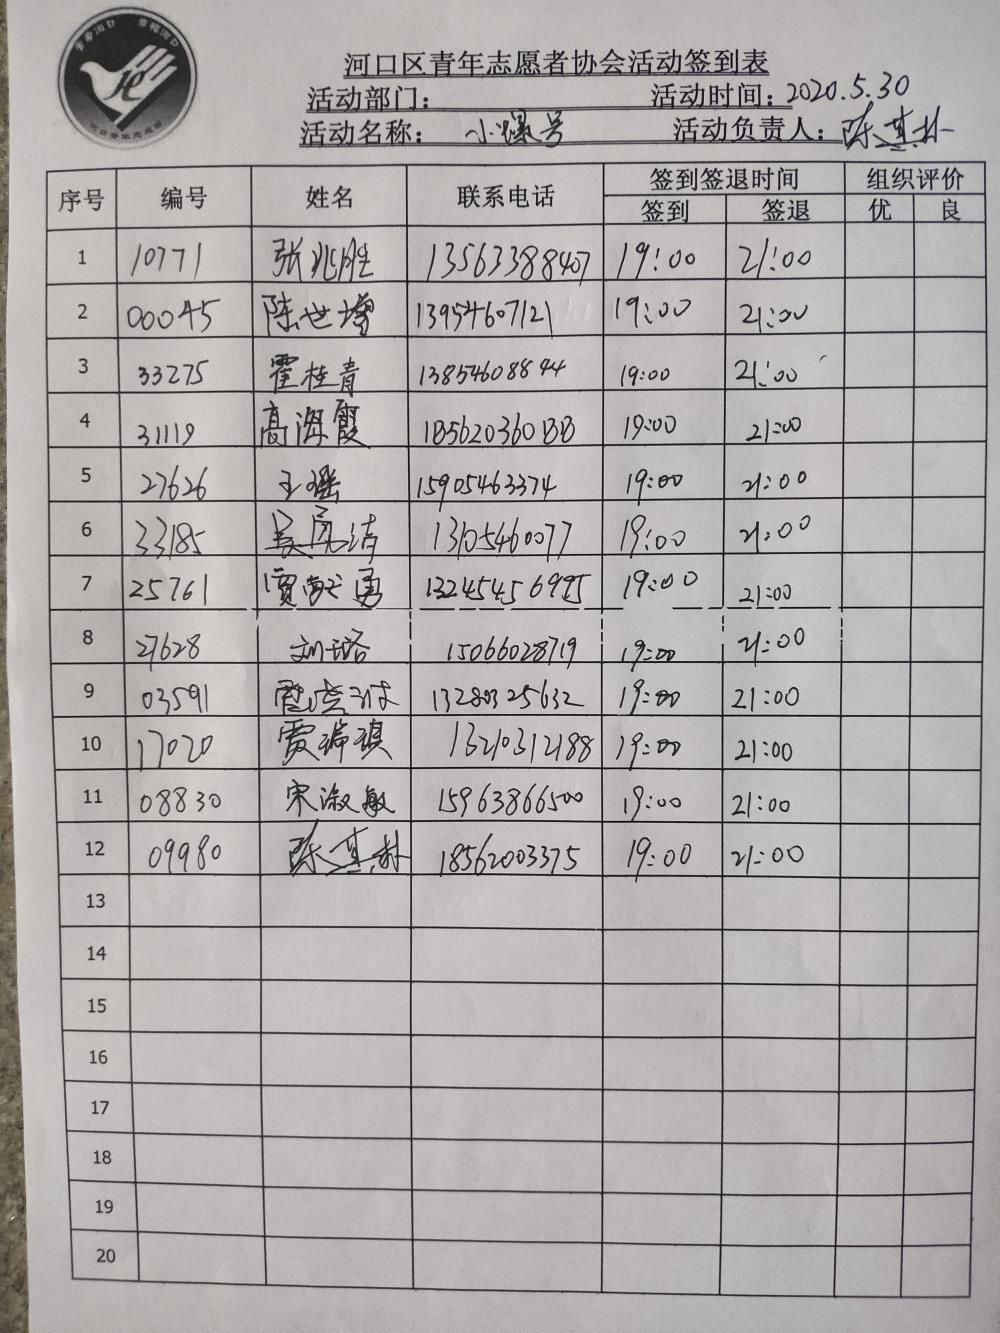 河口区青年志愿者协会活动签到表
活动部门： 活动时间：2020.5.30
活动名称： 小 号 活动负责人：陈其
序号 编号 姓名 联系电话 签到签退时间 组织评价
签到 签退 优 良
1 10771 张兆胜 13563388407 19:00 21:00
2 00045 陈世增 13954607121 19:00 21:00
3 33275 霍桂青 13854608844 19:00 21:00
4 31119 高海霞 19:00 21:00
5 27626 王瑶 15905463374 19:00 21:00
6 33185 吴 清 13105460077 19:00 21:00
7 25761 贾 勇 19:00 21:00
8 27628 刘璐 15066028719 19:00 21:00
9 03591 13280325632 19:00 21:00
10 17020 贾瑞琪 13210312188 19:00 21:00
11 08830 宋淑敏 15963866500 19:00 21:00
12 09980 陈其 18562003375 19:00 21:00
13
14
15
16
17
18
19
20